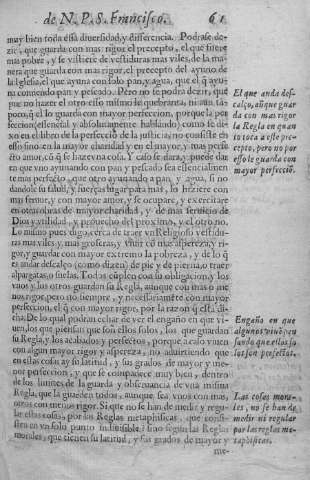 de N. P. S. Francisco. 61
muy bien toda essa diversidad, y diferencia. Podrase de-
zir, que guarda con mas rigor el precepto, el que fuere
mas pobre, y se vistiere de vestiduras mas viles, de la ma-
nera que guarda con mas rigor, el precepto del ayuno de
la Iglesia, el que ayuna con solo pan, y agua, que el q̃ ayu-
na comiendo pan y pescado. Pero no se podra dezir, que
que no hazer el otro esso mismo lo quebranta, ni aun tã-
poco, q̃ el lo guarda con mayor perfeccion, porque la per
feccion (essencial y absolutamente hablando) como le di-
xo en el libro de la perfecciõ de la justicia, no consiste en
esso sino en la mayor charidad y en el mayor, y mas perfe
cto amor, cõ q̃ se haze vna cosa. Y caso se dara, y puede dar
en que vno ayunando con pan y pescado sea essencialmen
te mas perfecto, que otro ayunando a pan, y agua, si no
dandole su salud, y fuerças lugar para mas, lo hiziere con
mas feruor, y con mayor amor, y se ocupare, y exercitare
en otras obras de mayor charidad, y de mas seruicio de
Dios y vtilidad, y prouecho del proximo, y el otro no.
Lo mismo pues digo, cerca de traer vn Religioso vestidu-
ras mas viles y mas groseras, y viuir cõ mas aspereza y ri-
gor, y guardar con mayor extremo la pobreza, y de lo q̃
es andar descalço (como dizen) de pie y de pierna, o traer
alpargates, o suelas. Todos cũplen con su obligacion, y los
vnos y los otros guardan su Regla, aunque con mas o me
nos rigor, pero no siempre, y necessariamẽte con mayor
perfeccion, el q̃ con mayor rigor, por la razon q̃ esta di-
cha. De lo qual podran echar de ver el engaño en que vi-
uen, los que piensan que son ellos solos, los que guardan
su Regla, y los acabados y perfectos, porque acaso viuen
con algun mayor rigor y aspereza, no aduirtiendo que
en estas cosas ay su latitud, y sus grados de mayor y me-
nor perfeccion, y que se compadece muy bien, dentro
de los limites de la guarda y obseruancia de vna misma
Regla, que la guarden todos, aunque sea vnos con mas,
otros con menos rigor. Si que no se han de medir y regu-
lar estas cosas, por las Reglas metaphisicas, que consi-
sten en vn solo punto indiuisible, sino segun las Reglas
morales, que tienen su latitud, y sus grados de mayor y
me-
El que anda des-
calço, aũque guar
da con mas rigor
la Regla en quan
to toca a este pre-
cepto, pero no por
esso le guarda con
mayor perfecciõ.
Engaño en que
algunos viuẽ, pen
sando que ellos so
los son perfectos.
Las cosas mora-
les, no se han de
medir ni regular
por las reglas me-
taphisicas.